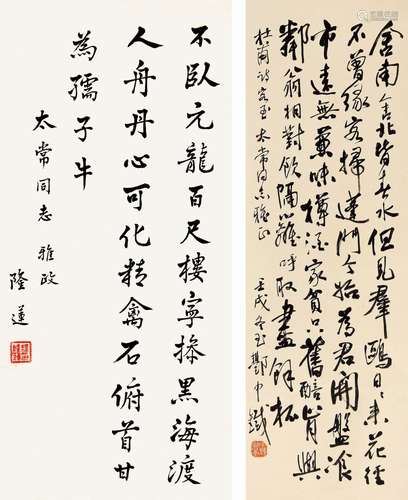 舍南舍北皆春水但見羣鷗日日來花徑
不曾緣客掃蓬門今始為君開盤飧
市遠無兼味樽酒家貧只舊醅肯與
鄰翁相對飲隔籬呼取盡餘杯
杜甫詩客至 太常同志雅正
壬戌冬至鄭中鐵
不臥元龍百尺樓寧操黑海渡
人舟丹心可化精禽石俯首甘
為孺子牛
太常同志 雅政
隆蓮